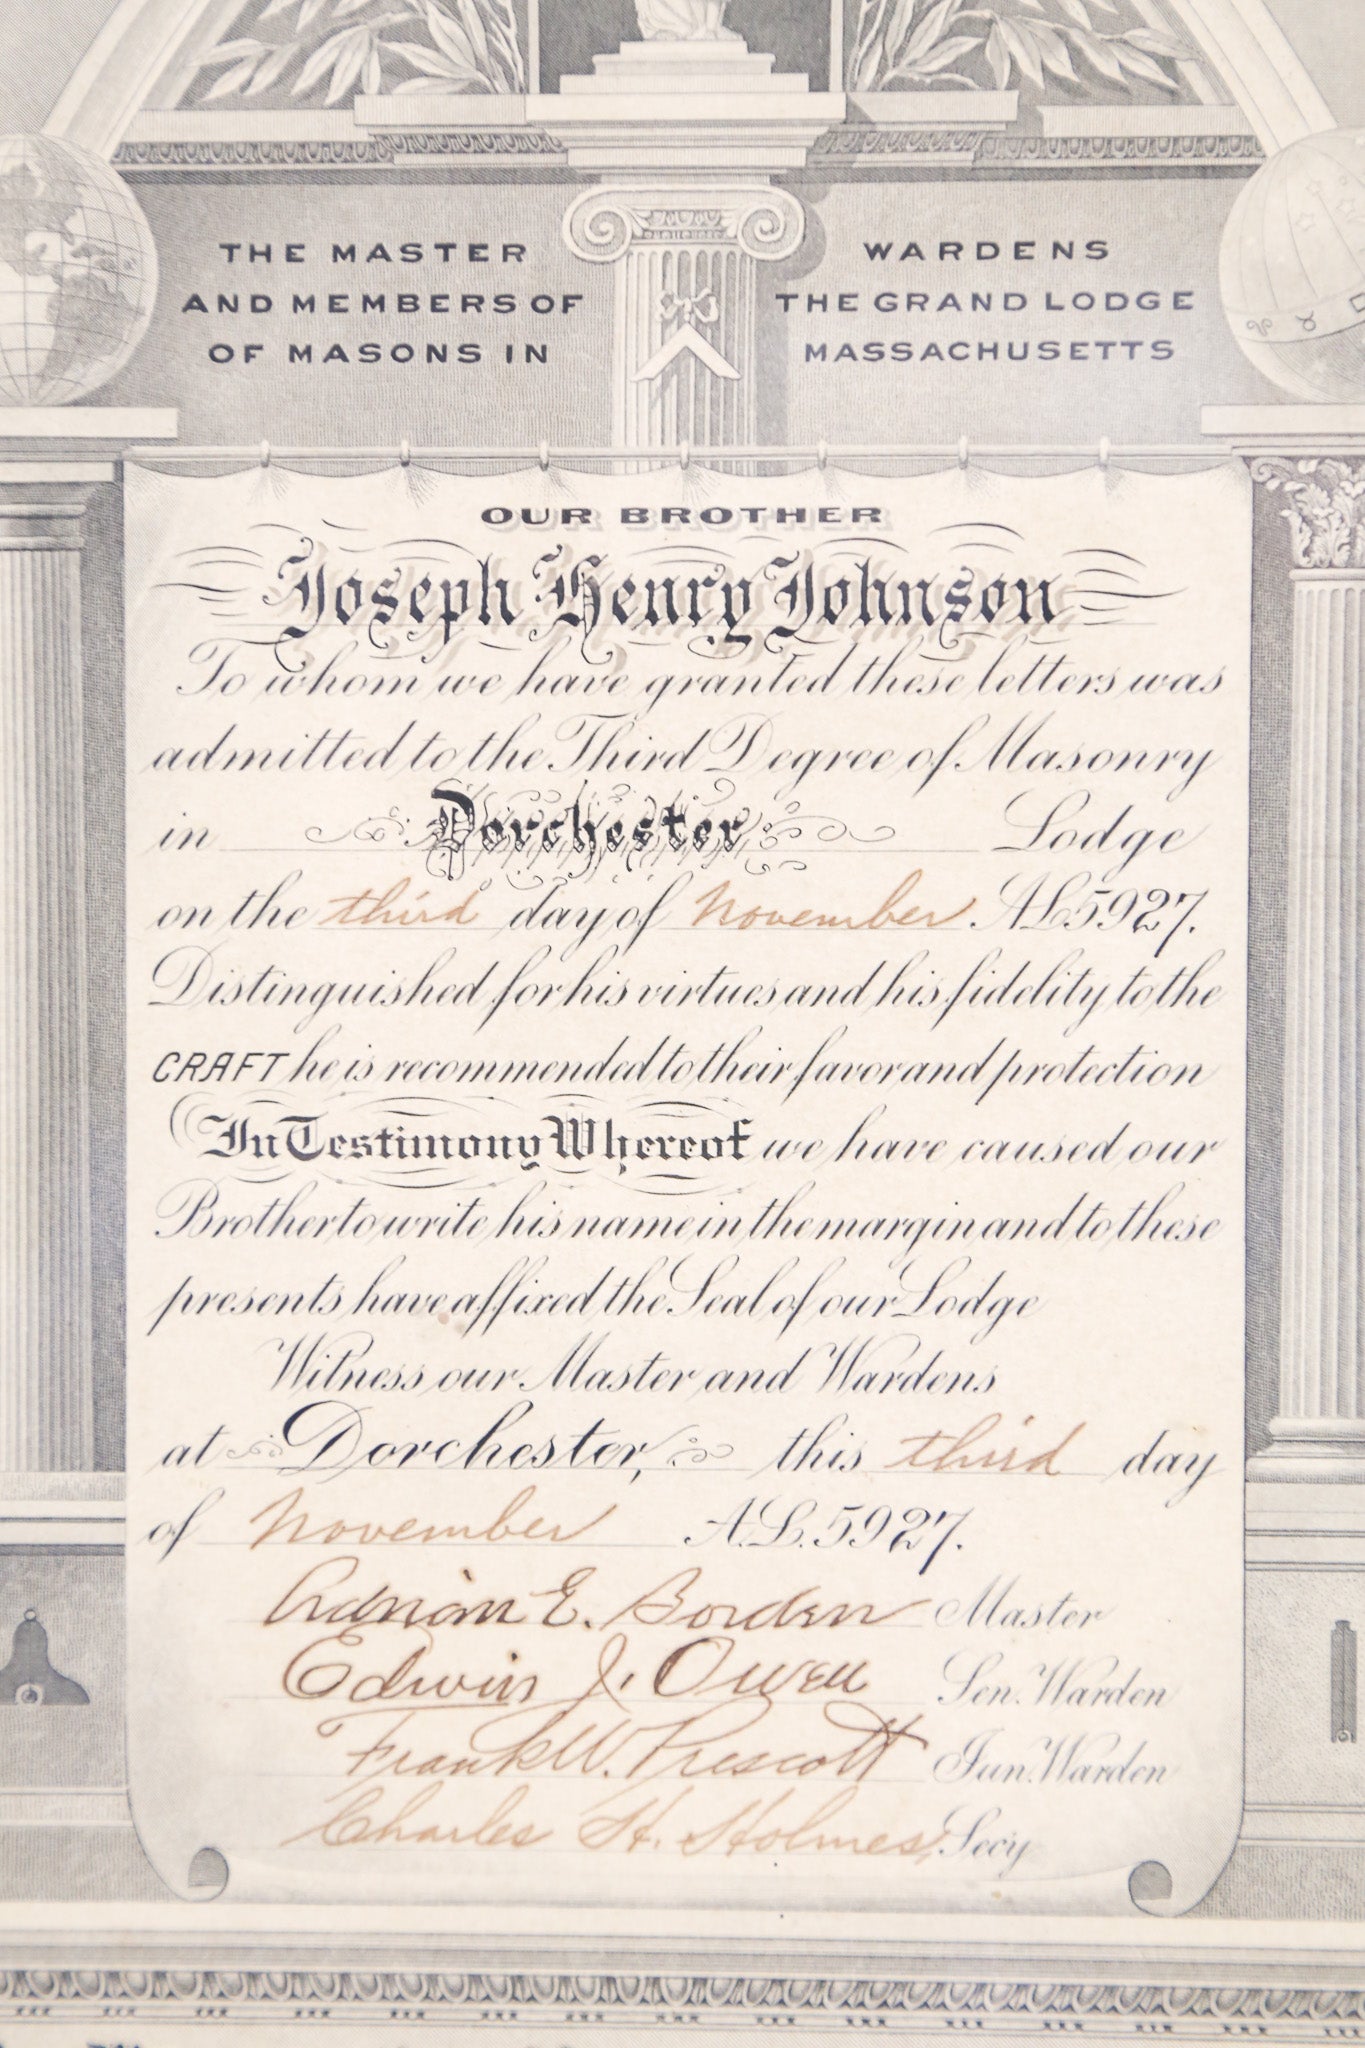 THE MASTER WARDENS
AND MEMBERS OF THE GRAND LODGE
OF MASONS IN MASSACHUSETTS
OUR BROTHER
Joseph Henry Johnson
To whom we have granted these letters was
admitted to the Third Degree of Masonry
in Dorchester Lodge
on the third day of November A.L. 5927.
Distinguished for his virtues and his fidelity to the
CRAFT he is recommended to their favor and protection
In Testimony Whereof we have caused our
Brother to write his name in the margin and to these
presents have affixed the Seal of our Lodge
Witness our Master and Wardens
at Dorchester, this third day
of November A.L. 5927.
Adrian E. Borden Master
Edwin J. Owen Sen. Warden
Frank W. Prescott Jun. Warden
Charles H. Holmes, Secy